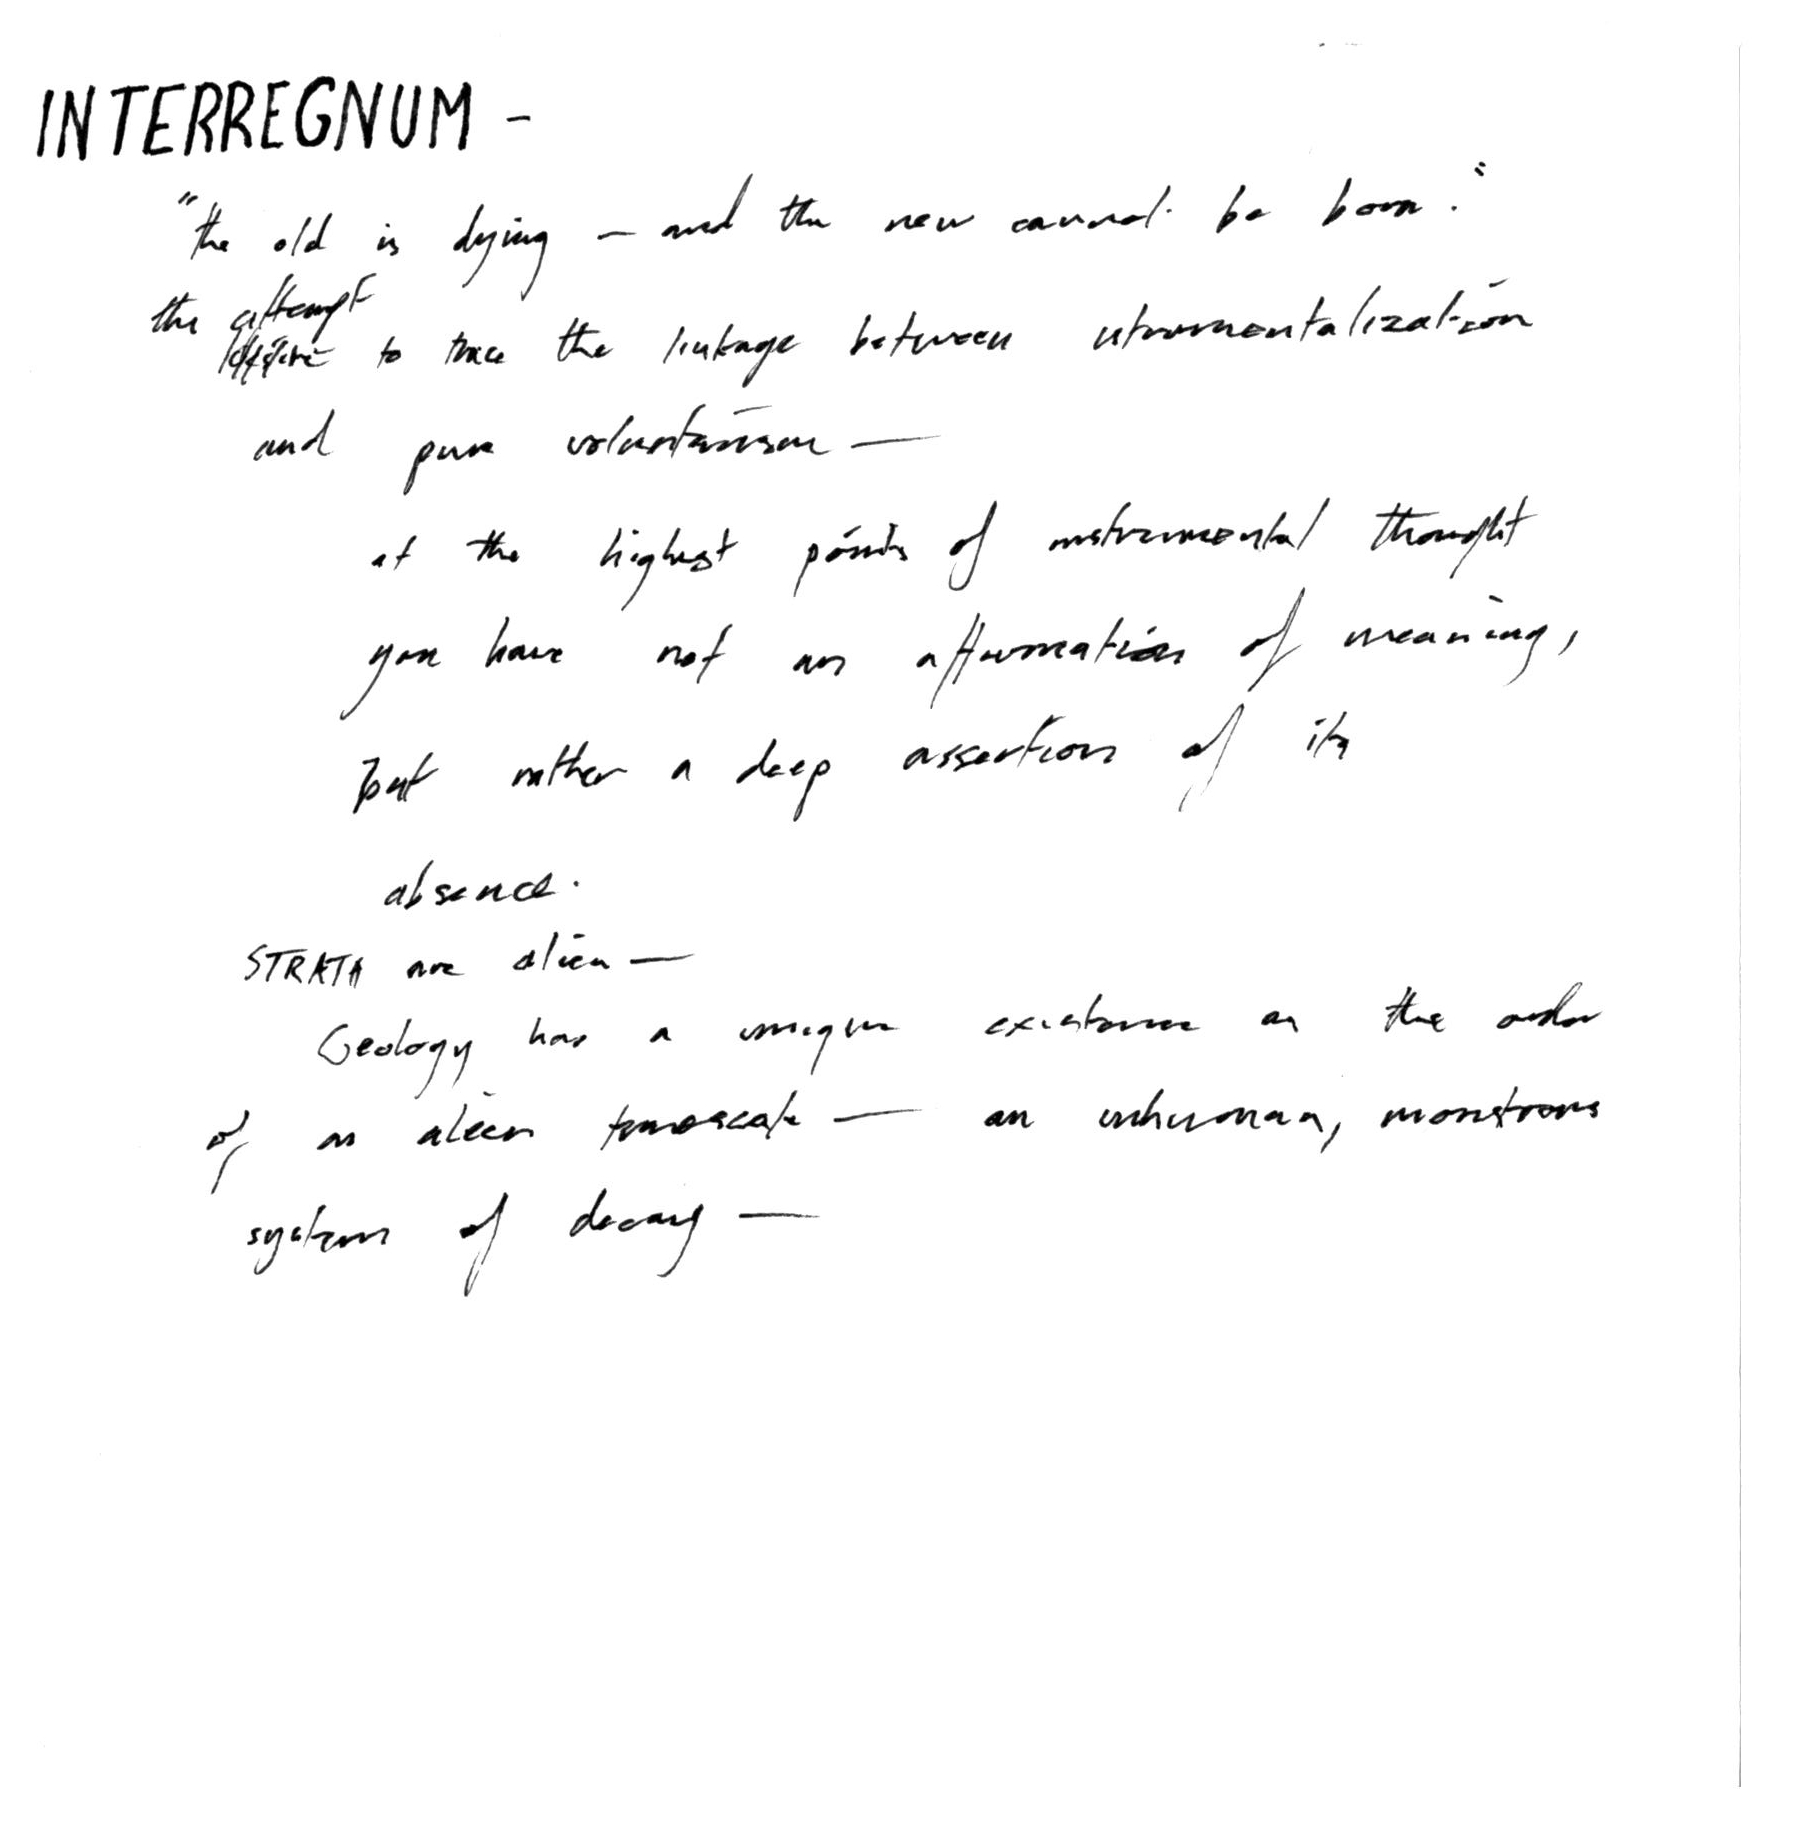 INTERREGNUM -
"the old is dying — and the new cannot be born."
the attempt to trace the linkage between intrumentalization
and pure voluntarism —
at the highest points of instrumental thought
you have not an affirmation of meaning,
but rather a deep assertion of its
absence.
STRATA are alien —
Geology has a unique existence on the order
of an alien timescale — an inhuman, monstrous
system of decay —